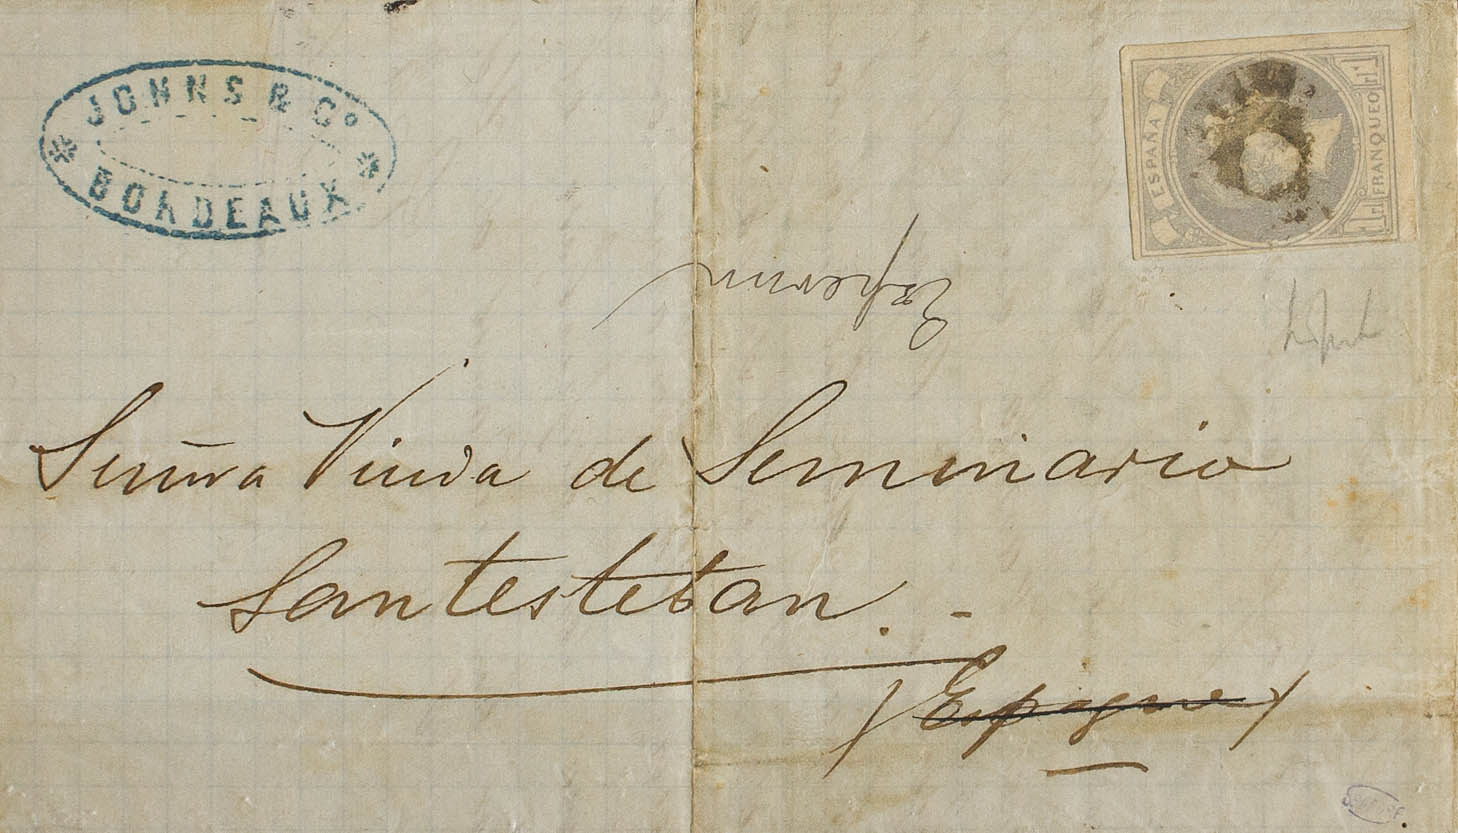 JOHNS & Cº
BORDEAUX
ESPAÑA
FRANQUEO
1 rl
1 rl
Señora Viuda de Seminario
Santesteban.-
(Espagne)